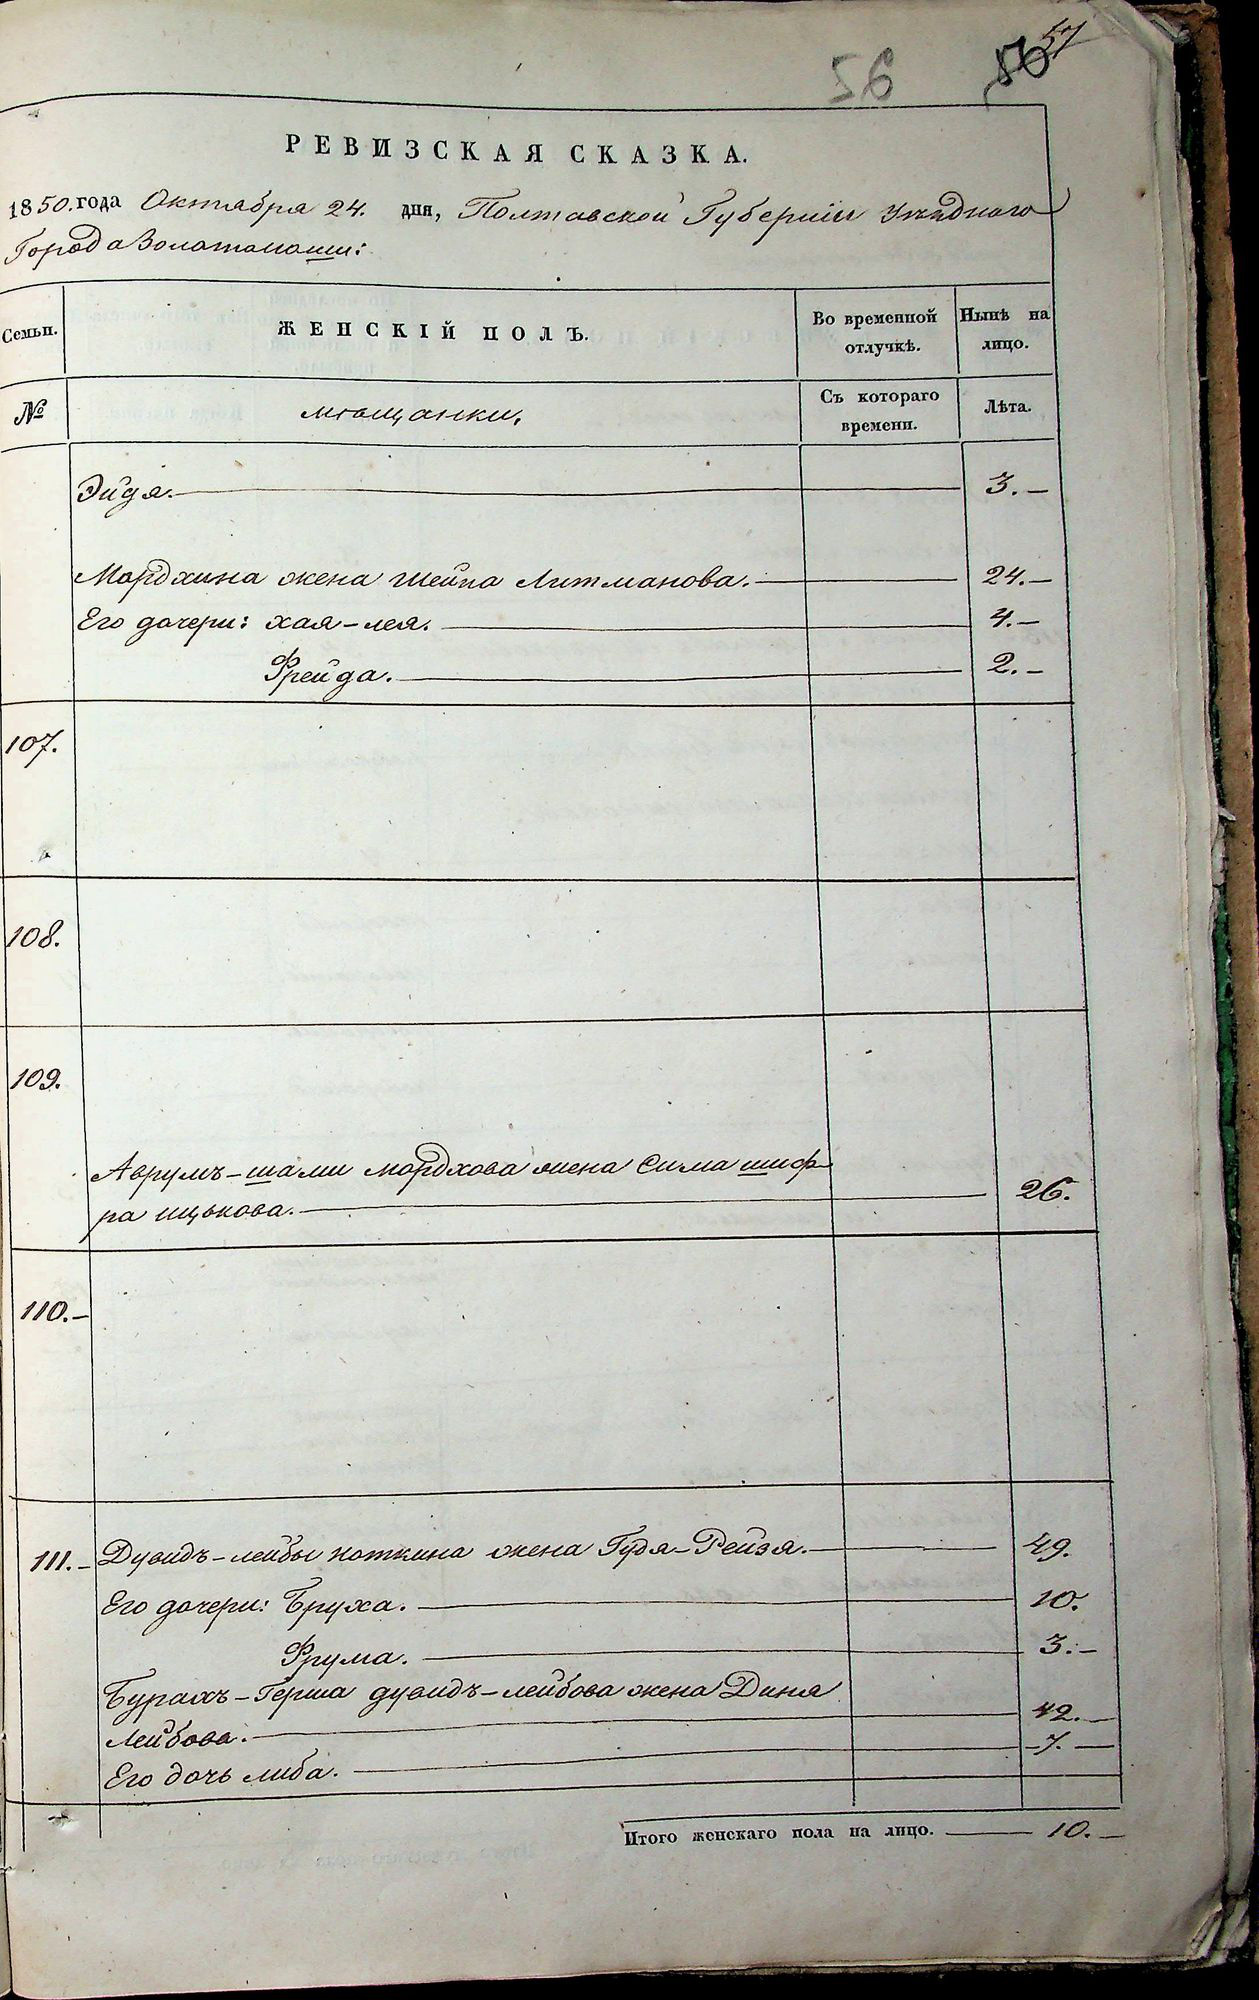 57
56 56
РЕВИЗСКАЯ СКАЗКА.
1850. года Октября 24. дня, Полтавской Губерніи уѣзднаго
Города Золотоноши:
Семьи. ЖЕНСКІЙ ПОЛЪ. Во временной отлучкѣ. Нынѣ на лицо.
№ мѣщанки. Съ котораго времени. Лѣта.
Эйдя. 3.
Мордхина жена Шейна Литманова. 24.
Его дочери: хая-лея. 4.
Фрейда. 2.
107.
108.
109.
Аврумъ-шами мордхова жена Сима шиф-
ра ицькова. 26.
110.
111. Дувидъ-лейбы ноткина жена Гудя-Рейзя. 49.
Его дочери: Бруха. 10.
Фрума. 3.
Бурахъ-Герша дувидъ-лейбова жена Диня
Лейбова. 42.
Его дочь либа. 7.
Итого женскаго пола на лицо. 10.